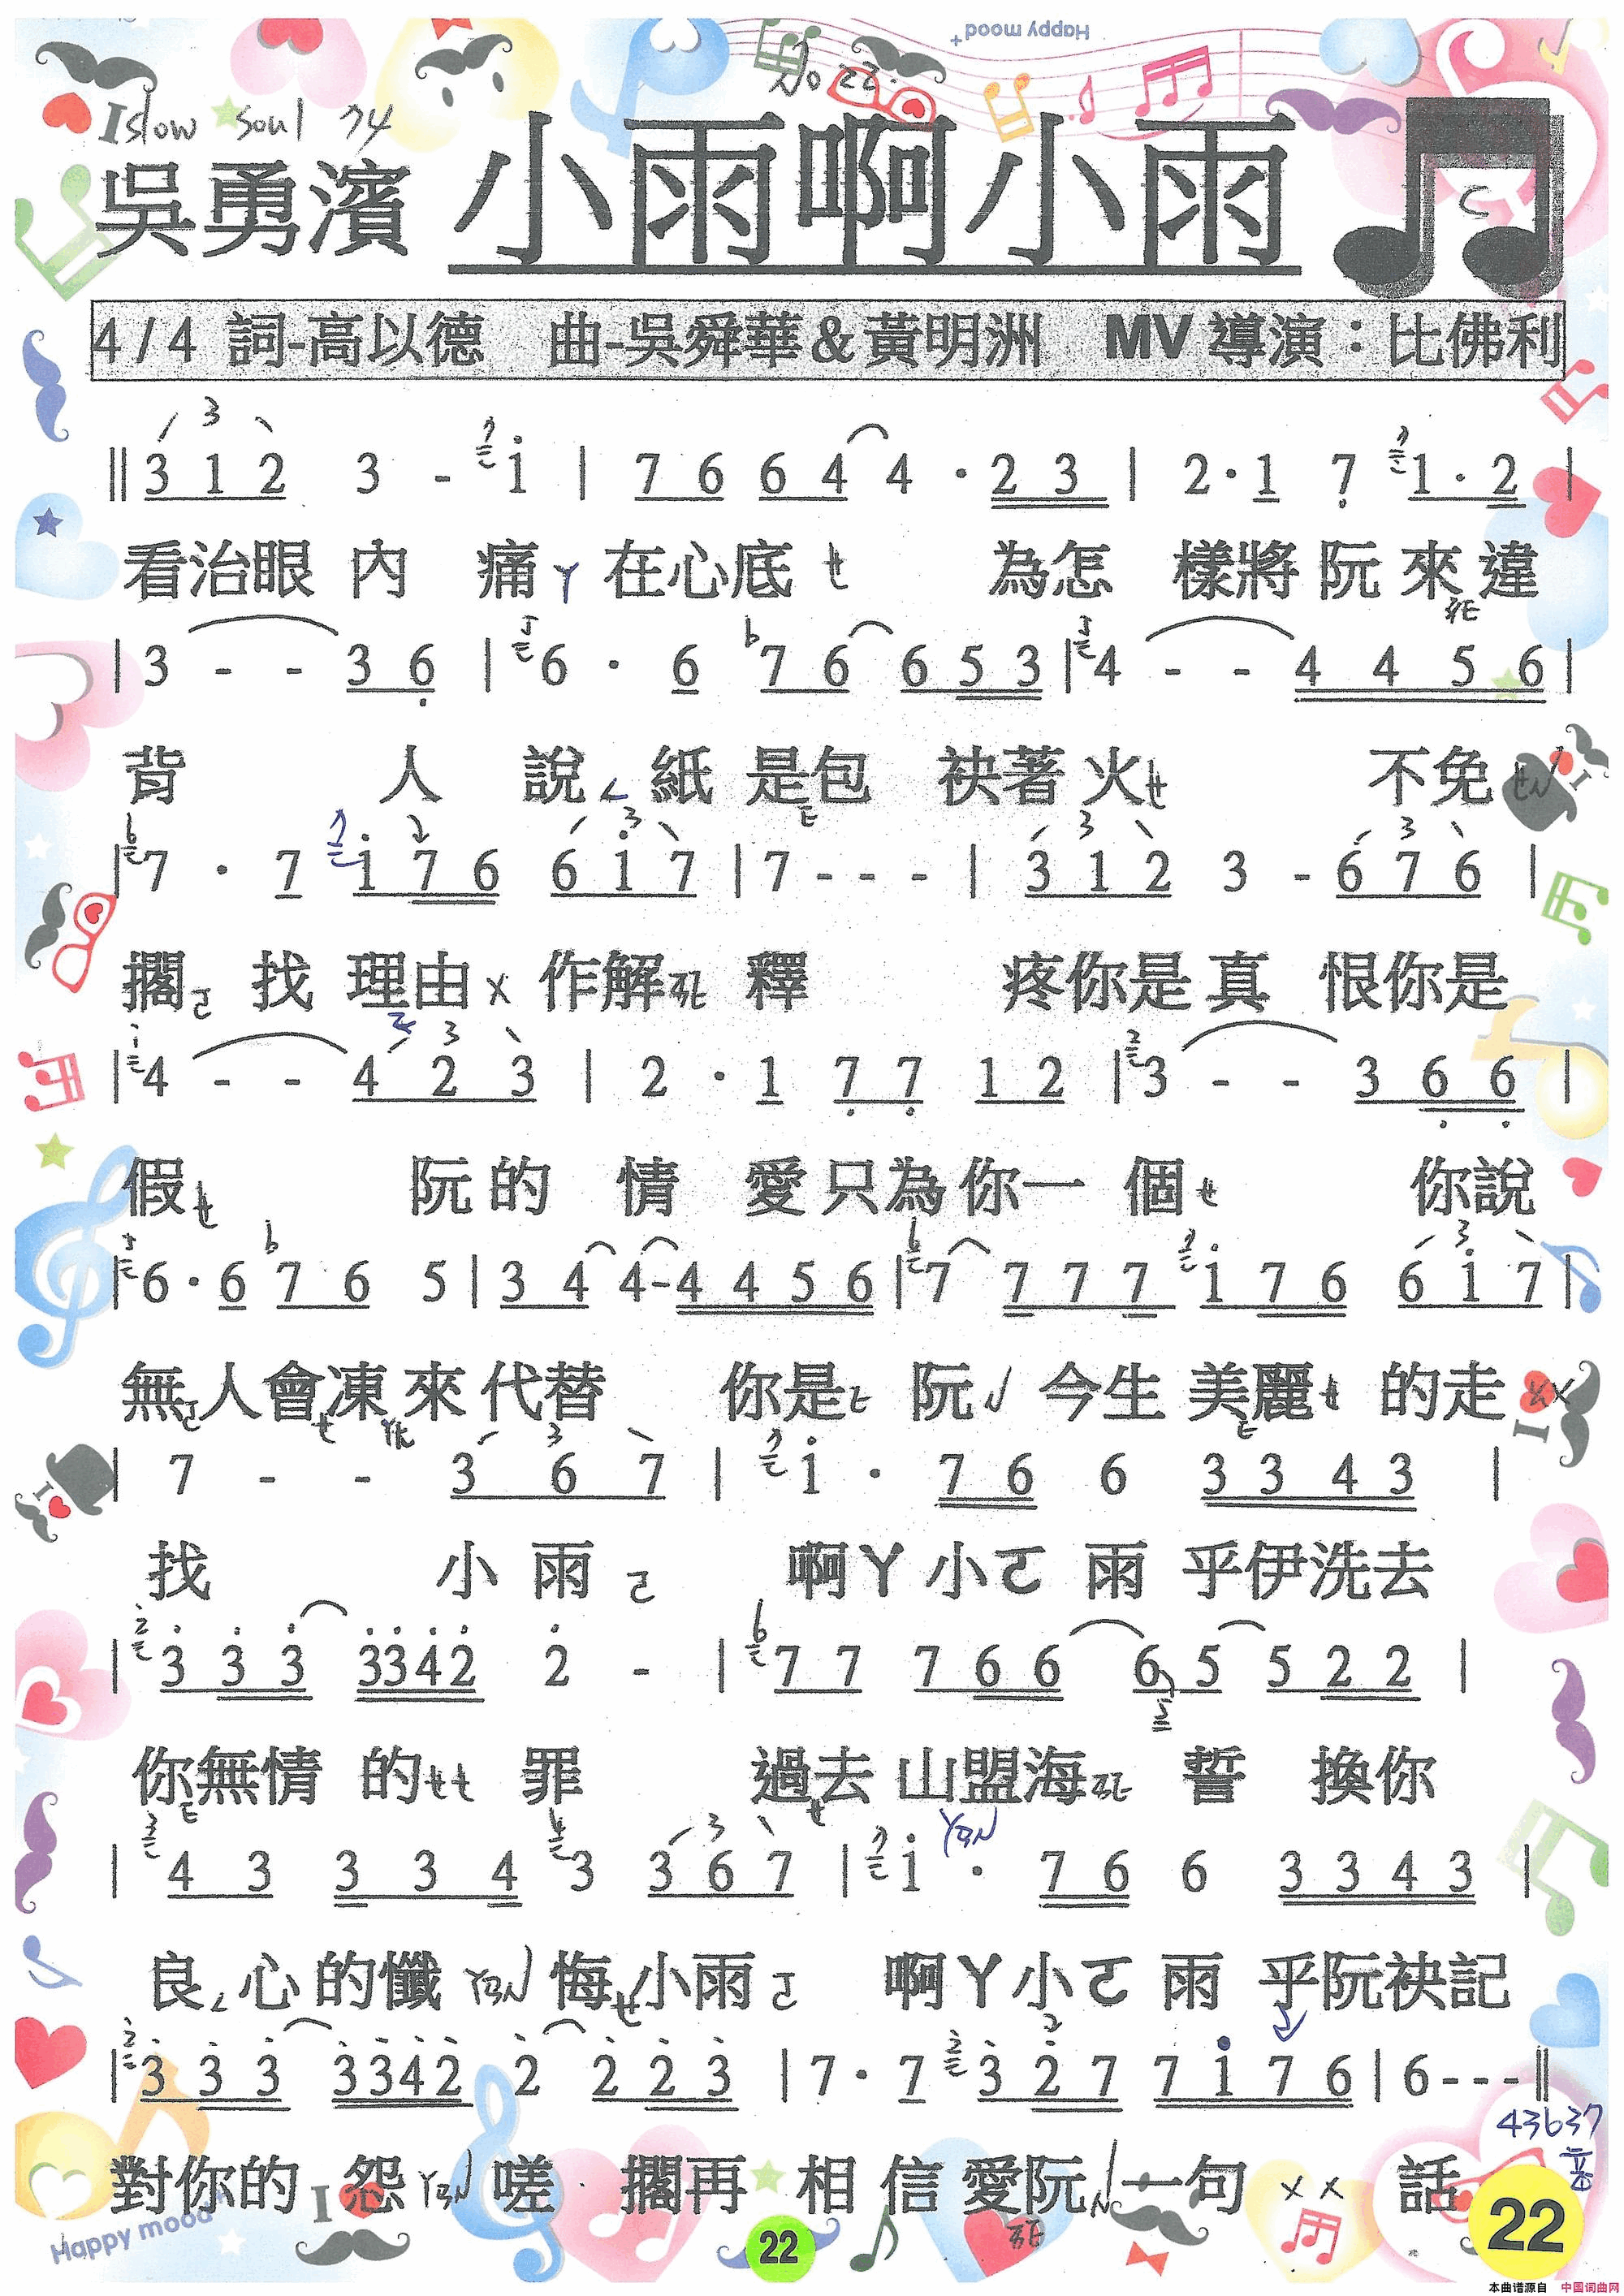 Happy mood
No 22.
slow soul 74
吳勇濱 小雨啊小雨
4/4 詞-高以德 曲-吳舜華&黃明洲 MV 導演：比佛利
‖ 3 1 2 3 - i | 7 6 6 4 4 · 2 3 | 2 · 1 7 1 · 2 |
看治眼 內 痛ㄚ 在心底 ㄝ 為怎 樣將 阮 來 違
| 3 - - 3 6 | 6 · 6 b7 6 6 5 3 | 4 - - 4 4 5 6 |
背 人 說ㄟ 紙 是包 袂著火ㄝ 不免
| 7 · 7 i 7 6 6 i 7 | 7 - - - | 3 1 2 3 - 6 7 6 |
擱ㄛ 找 理由ㄨ 作解 釋 疼你是真 恨你是
| 4 - - 4 2 3 | 2 · 1 7 7 1 2 | 3 - - 3 6 6 |
假ㄝ 阮 的 情 愛 只為 你一 個ㄝ 你說
| 6 · 6 b7 6 5 | 3 4 4 - 4 4 5 6 | 7 7 7 7 i 7 6 6 i 7 |
無ㄛ人會凍 來 代替 你是 阮 今生 美麗 的走ㄨㄨ
| 7 - - 3 6 7 | i · 7 6 6 3 3 4 3 |
找 小 雨 ㄛ 啊ㄚ 小ㄛ 雨 乎伊洗去
| 3 3 3 3342 2 - | 7 7 7 6 6 6 5 5 2 2 |
你無情 的ㄝㄝ 罪 過去 山盟海 誓 換你
| 4 3 3 3 4 3 3 6 7 | i · 7 6 6 3 3 4 3 |
良ㄟ心 的懺 悔ㄝ小雨ㄛ 啊ㄚ小ㄛ 雨 乎阮袂記
| 3 3 3 3342 2 2 2 3 | 7 · 7 3 2 7 7 i 7 6 | 6 - - - ‖
43637
對你的 怨 嗟 擱再 相 信 愛阮 一句 ㄨㄨ 話
Happy mood
22
22
本曲谱源自 中国词曲网